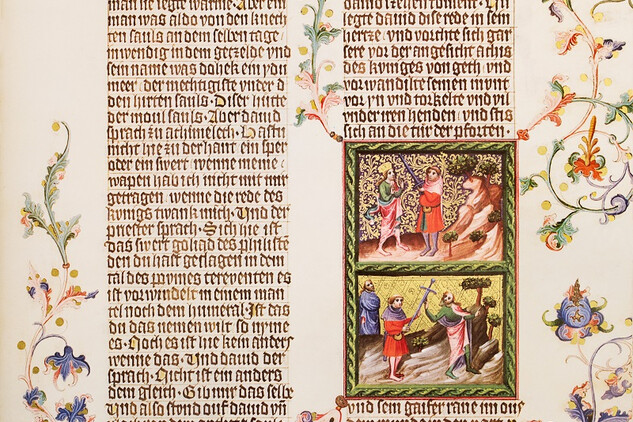 man was aldo von den
ten sauls an dem selben tage
inwendig in dem getzelde vnd
sein name was dohek ein ydu
meer der mechtigiste vnder d
den hirten sauls · Diser hutte
der moul sauls · Aber dauid
sprach zu achimelech · Hastu
nicht hie zu der hant ein sper
oder ein swert wenne meine
wapen hab ich nicht mit mir
getragen wenne die rede des
kunigs twank mich · Vnd der
priester sprach · Sich hie ist
das swert golias des philiste
den du hast geslagen in dem
tal des es
ist vorwindelt in einem man
tel noch dem humeral · Ist das
du das nemen wilt so
es · Noch es ist hie kein anders
wenne das · Vnd dauid der
sprach · Nicht ist ein anders
dem gleich · Gib mir das selbe
Vnd also stond auf dauid vñ
legte dauid dise rede in sein
hertze · vnd vorchte sich gar
sere vor der angesicht achis
des kuniges von geth · vnd
vorwandilte seinen munt
vor yn vnd torkelte vnd vil
vnder iren henden · vnd stis
sich an die tur der pforten ·
vnd sein gaifer rane im aus